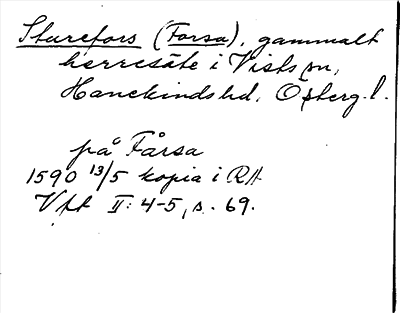 Sturefors (Forsa), gammalt
herresäte i Vists sn,
Hanekinds hd. Österg. l.
på Fårsa
1590 13/5 kopia i RA
Vft II: 4-5, s. 69.